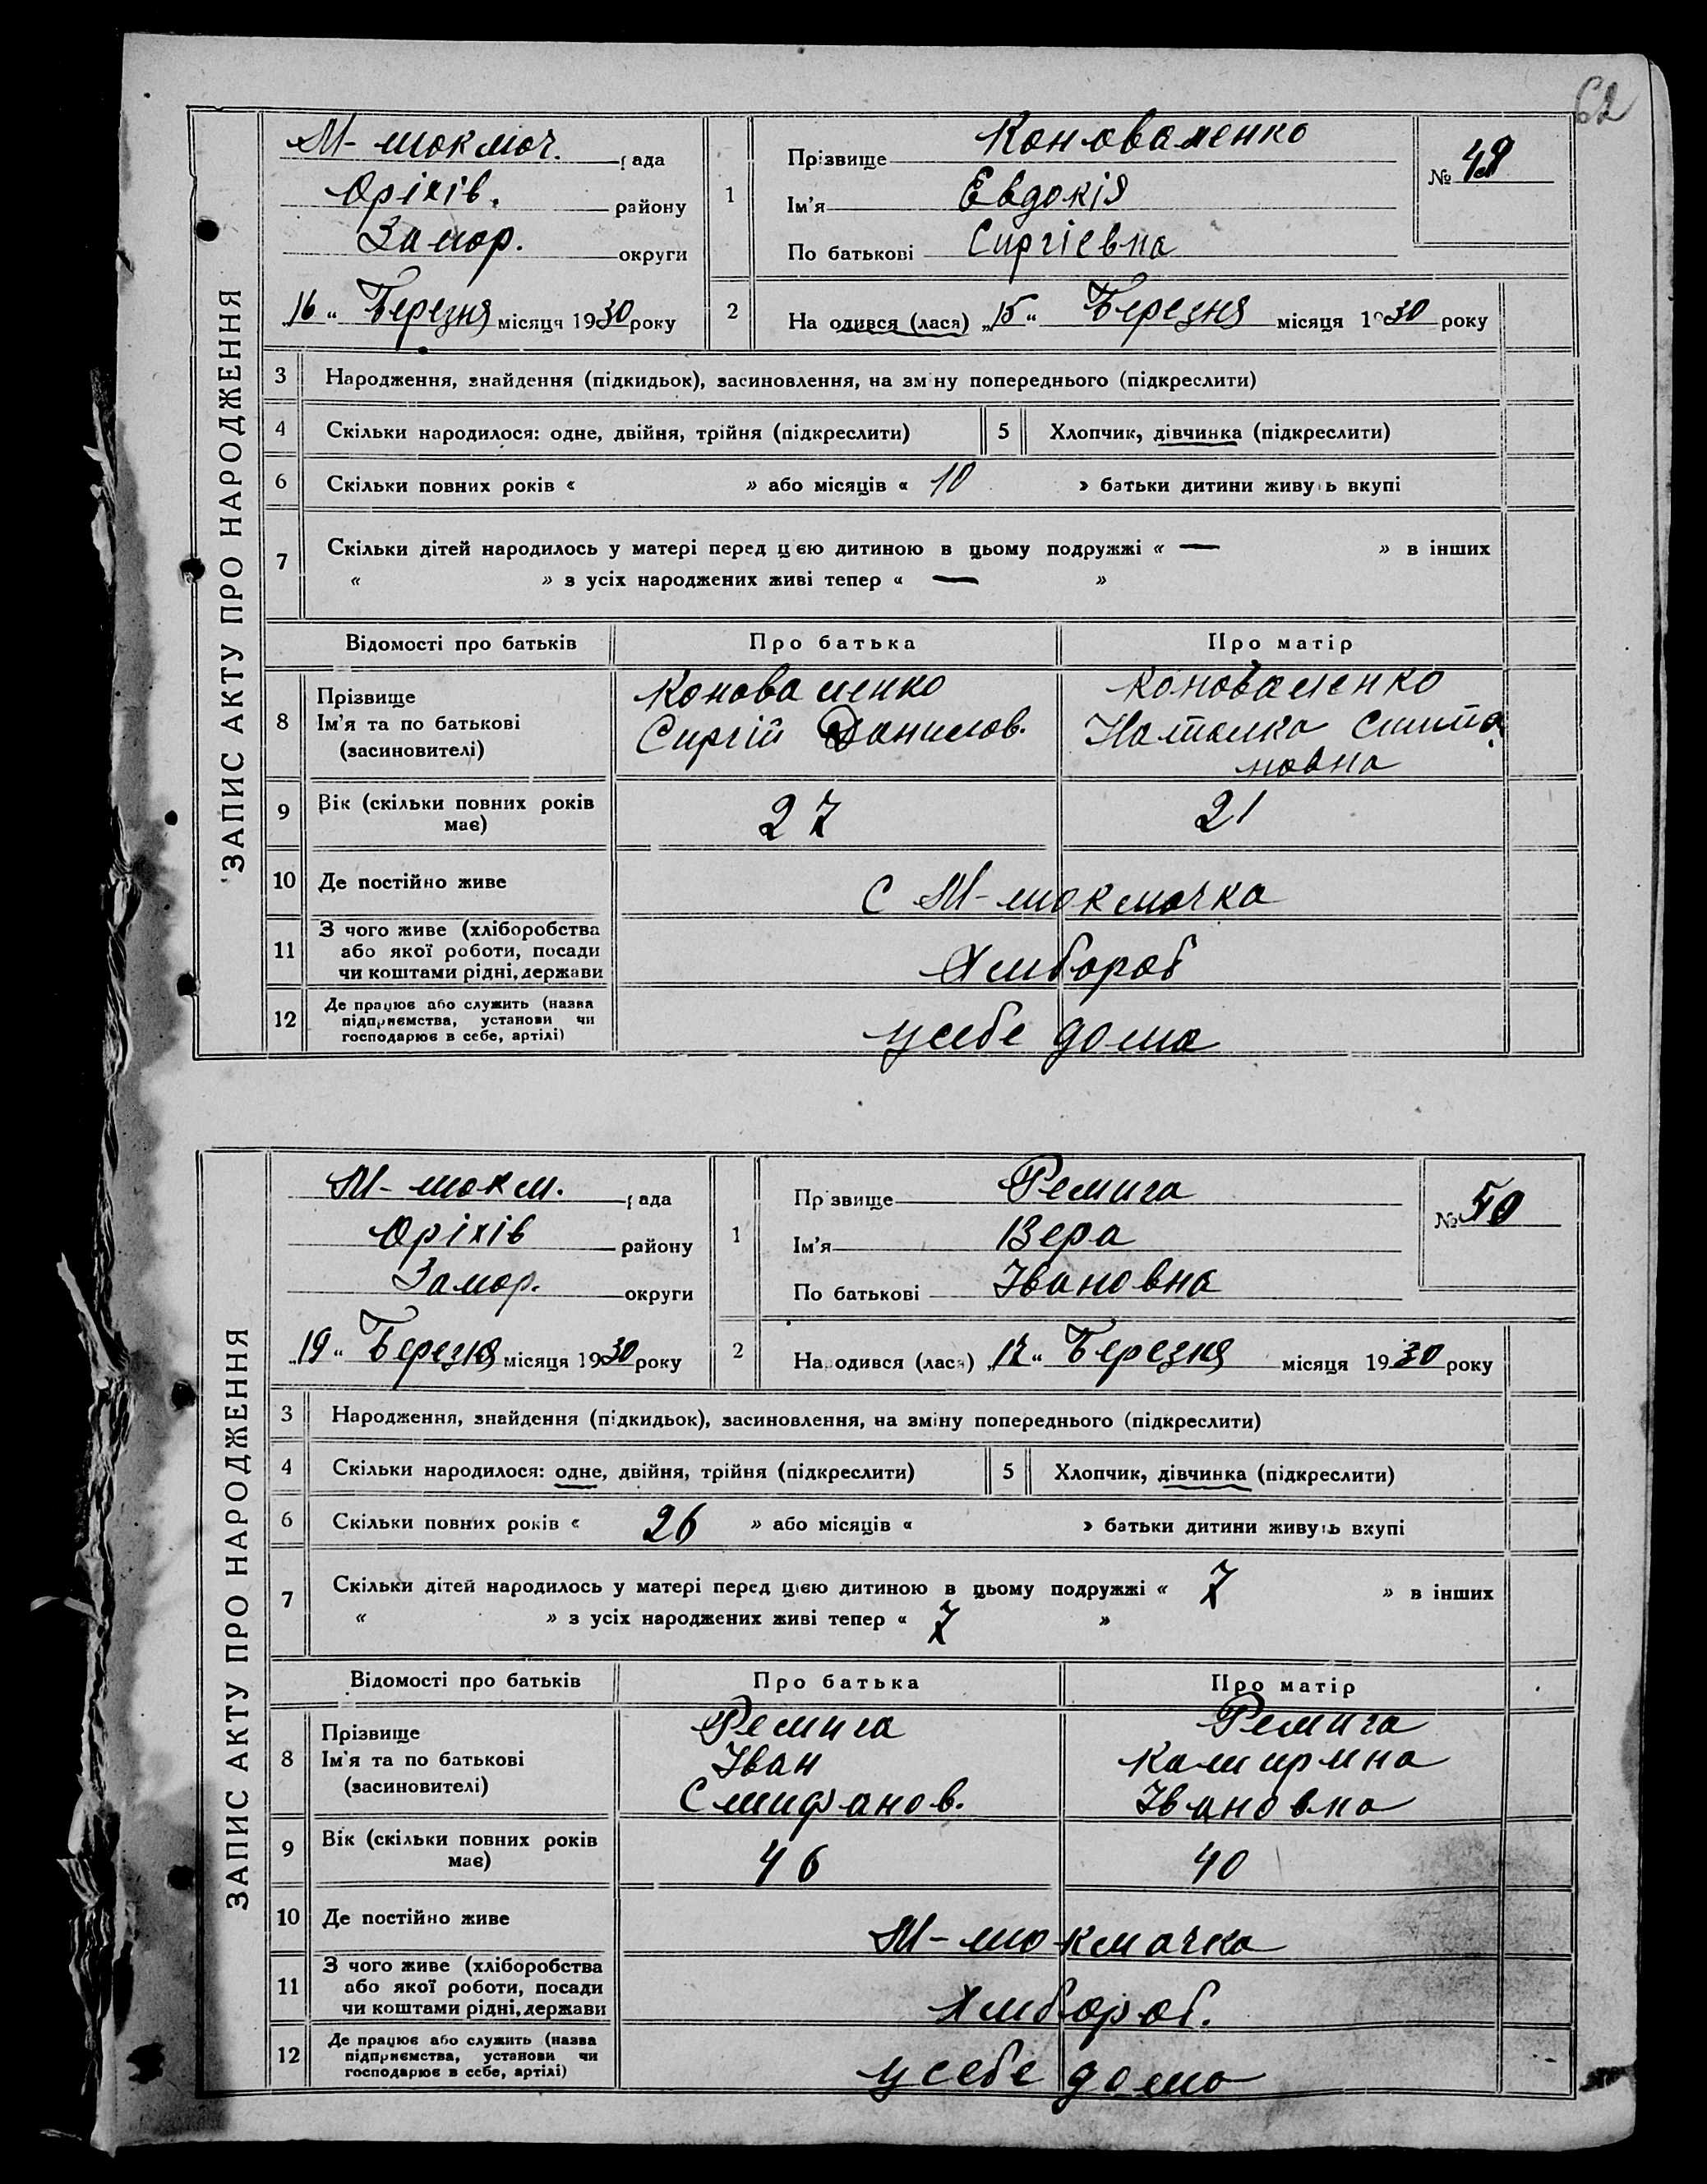 62
ЗАПИС АКТУ ПРО НАРОДЖЕННЯ
М-токмач. рада
Оріхів. району
Запор. округи
„16“ Березня місяця 1930 року
1
Прізвище Коноваленко
Ім'я Евдокія
По батькові Сиргіевна
№ 49
2
Народився (лася) „15“ Березня місяця 1930 року
3 Народження, знайдення (підкидьок), засиновлення, на зміну попереднього (підкреслити)
4 Скільки народилося: одне, двійня, трійня (підкреслити) 5 Хлопчик, дівчинка (підкреслити)
6 Скільки повних років « » або місяців « 10 » батьки дитини живуть вкупі
7 Скільки дітей народилось у матері перед цією дитиною в цьому подружжі « — » в інших
« » з усіх народжених живі тепер « — »
Відомості про батьків Про батька Про матір
8 Прізвище Ім'я та по батькові (засновителі)
Коноваленко
Сиргій Данилов.
Коноваленко
Наталка Стипа
новна
9 Вік (скільки повних років має) 27 21
10 Де постійно живе С М-токмачка
11 З чого живе (хліборобства
або якої роботи, посади
чи коштами рідні, держави
Хлибороб
12 Де працює або служить (назва
підприємства, установи чи
господарює в себе, артілі)
усебе дома
ЗАПИС АКТУ ПРО НАРОДЖЕННЯ
М-токм. рада
Оріхів району
Запор. округи
„19“ Березня місяця 1930 року
1
Прізвище Ремига
Ім'я Вера
По батькові Івановна
№ 50
2
Народився (лася) „12“ Березня місяця 1930 року
3 Народження, знайдення (підкидьок), засиновлення, на зміну попереднього (підкреслити)
4 Скільки народилося: одне, двійня, трійня (підкреслити) 5 Хлопчик, дівчинка (підкреслити)
6 Скільки повних років « 26 » або місяців « » батьки дитини живуть вкупі
7 Скільки дітей народилось у матері перед цією дитиною в цьому подружжі « 7 » в інших
« » з усіх народжених живі тепер « 7 »
Відомості про батьків Про батька Про матір
8 Прізвище Ім'я та по батькові (засиновителі)
Ремига
Іван
Стифанов.
Ремига
Катирина
Івановна
9 Вік (скільки повних років має) 46 40
10 Де постійно живе М-токмачка
11 З чого живе (хліборобства
або якої роботи, посади
чи коштами рідні, держави
Хлибороб.
12 Де працює або служить (назва
підприємства, установи чи
господарює в себе, артілі)
усебе дома